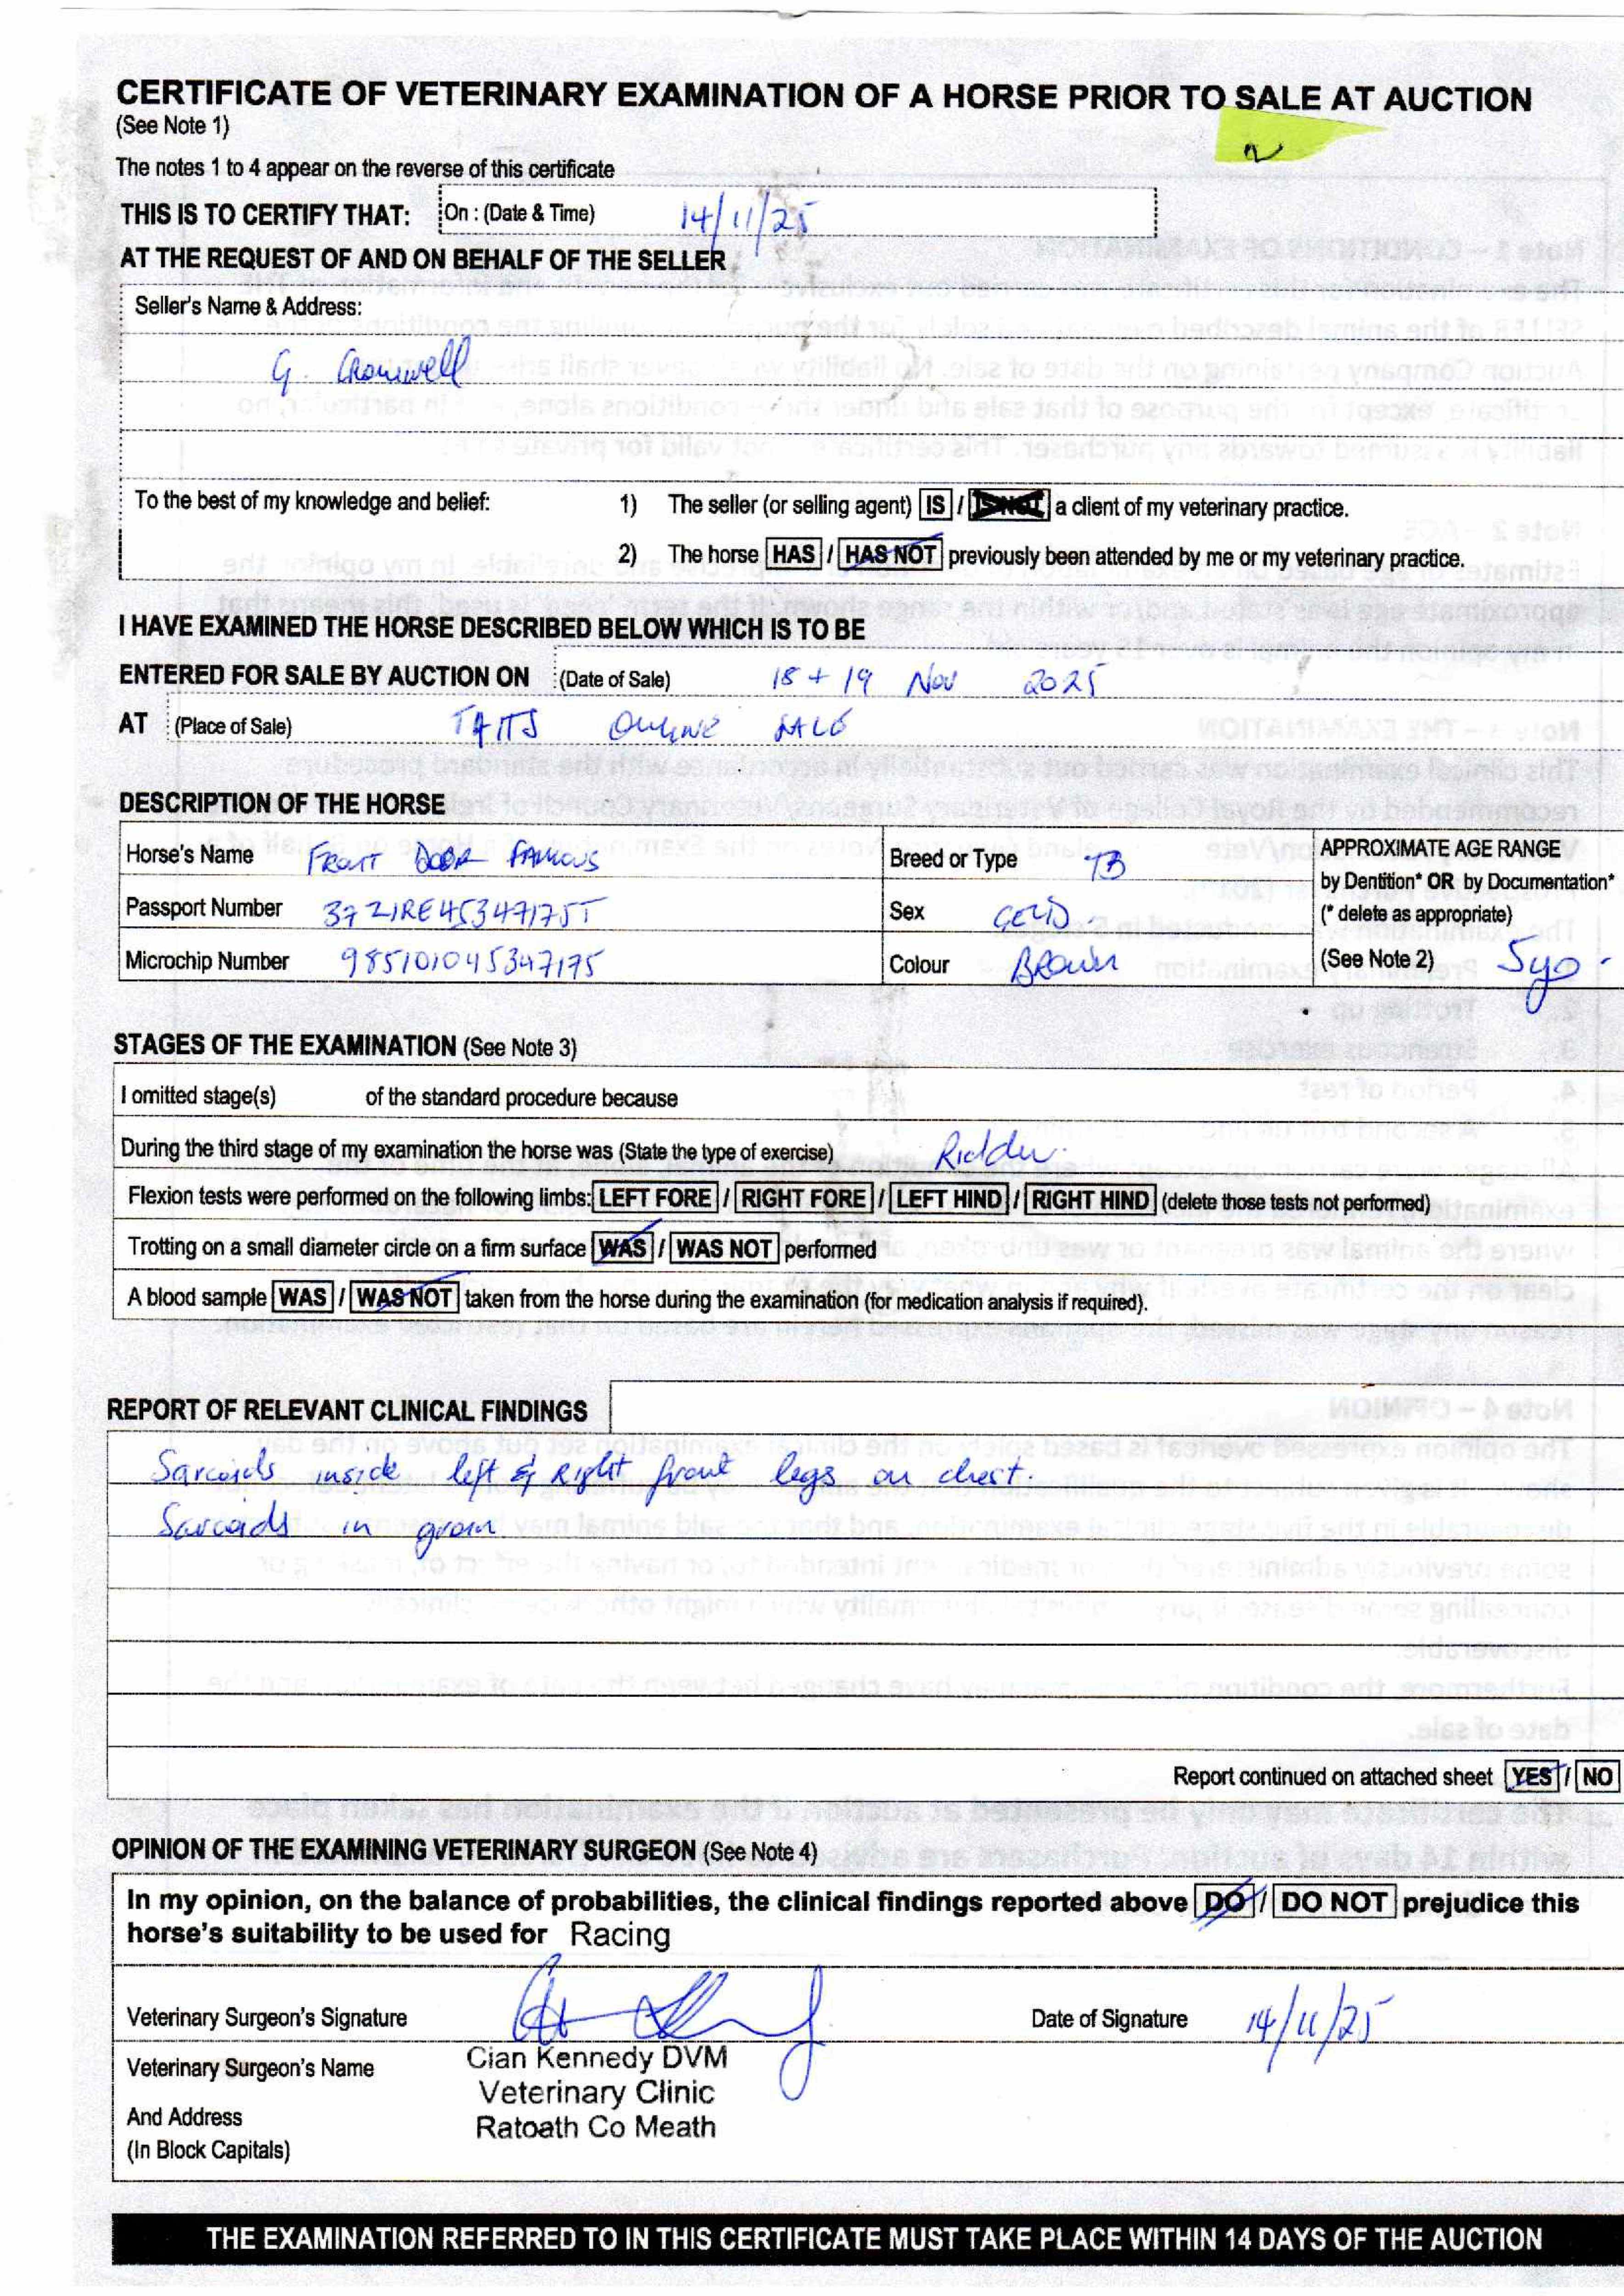 CERTIFICATE OF VETERINARY EXAMINATION OF A HORSE PRIOR TO SALE AT AUCTION
(See Note 1)
The notes 1 to 4 appear on the reverse of this certificate
THIS IS TO CERTIFY THAT: On : (Date & Time) 14/11/25
AT THE REQUEST OF AND ON BEHALF OF THE SELLER
Seller's Name & Address:
G. Cromwell
To the best of my knowledge and belief: 1) The seller (or selling agent) IS / IS NOT a client of my veterinary practice.
2) The horse HAS / HAS NOT previously been attended by me or my veterinary practice.
I HAVE EXAMINED THE HORSE DESCRIBED BELOW WHICH IS TO BE
ENTERED FOR SALE BY AUCTION ON (Date of Sale) 18 + 19 Nov 2025
AT (Place of Sale) TATTS ONLINE SALE
DESCRIPTION OF THE HORSE
Horse's Name FRONT DOOR FAMOUS Breed or Type TB APPROXIMATE AGE RANGE
by Dentition* OR by Documentation*
Passport Number 372IRE45347175T Sex GELD. (* delete as appropriate)
Microchip Number 985101045347175 Colour BROWN (See Note 2) 5yo.
STAGES OF THE EXAMINATION (See Note 3)
I omitted stage(s) of the standard procedure because
During the third stage of my examination the horse was (State the type of exercise) Ridden.
Flexion tests were performed on the following limbs: LEFT FORE / RIGHT FORE / LEFT HIND / RIGHT HIND (delete those tests not performed)
Trotting on a small diameter circle on a firm surface WAS / WAS NOT performed
A blood sample WAS / WAS NOT taken from the horse during the examination (for medication analysis if required).
REPORT OF RELEVANT CLINICAL FINDINGS
Sarcoids inside left & Right front legs on chest.
Sarcoids in groin
Report continued on attached sheet YES / NO
OPINION OF THE EXAMINING VETERINARY SURGEON (See Note 4)
In my opinion, on the balance of probabilities, the clinical findings reported above DO / DO NOT prejudice this
horse's suitability to be used for Racing
Veterinary Surgeon's Signature Date of Signature 14/11/25
Veterinary Surgeon's Name Cian Kennedy DVM
Veterinary Clinic
And Address Ratoath Co Meath
(In Block Capitals)
THE EXAMINATION REFERRED TO IN THIS CERTIFICATE MUST TAKE PLACE WITHIN 14 DAYS OF THE AUCTION